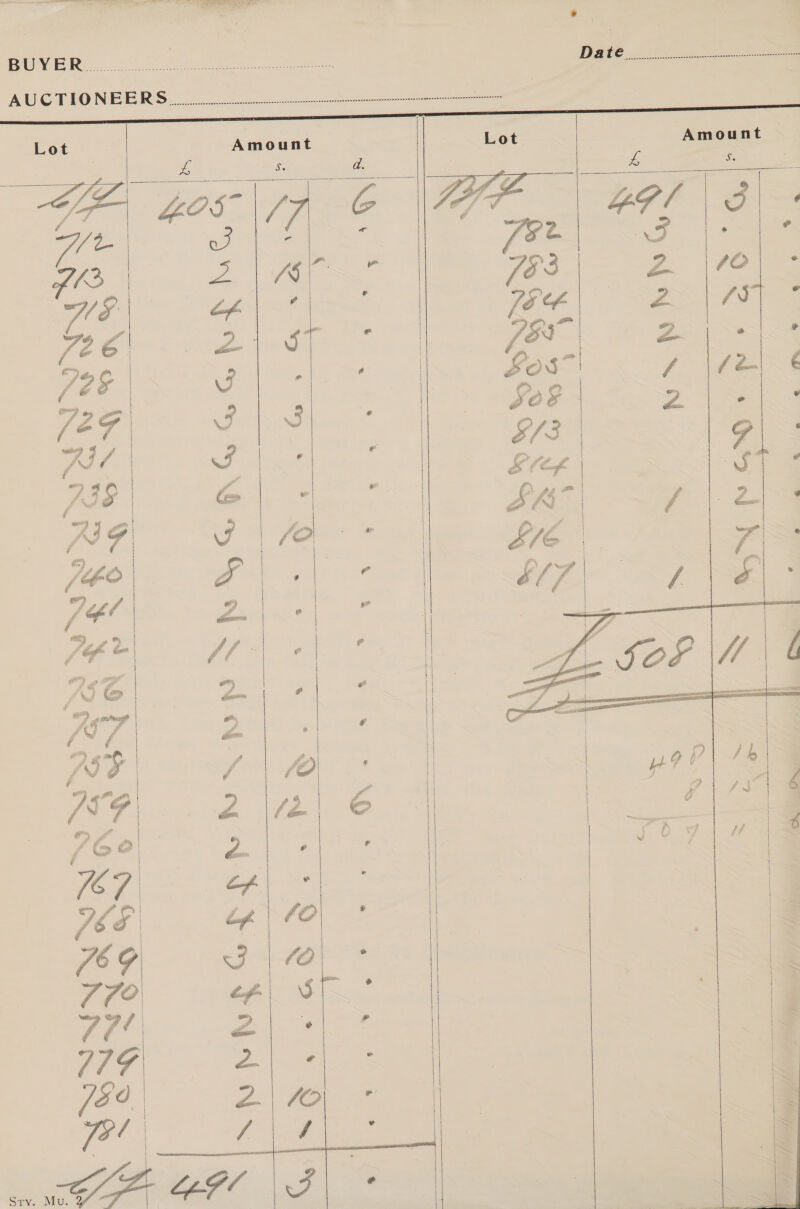 BUYER
Date
AUCTIONEERS
Lot Amount
£ s. d.
C/F 405 17 6
712 3 - -
713 2 15 -
718 4 - -
726 2 5 -
728 3 - -
729 3 3 -
731 3 - -
738 6 - -
739 3 10 -
740 8 - -
741 2 - -
742 11 - -
756 2 - -
757 2 - -
758 1 10 -
759 2 12 6
760 2 - -
767 4 - -
768 4 10 -
769 3 10 -
770 4 5 -
771 2 - -
779 2 - -
780 2 10 -
781 1 1 -
C/F 491 3 -
Sty. Mu. 2
Lot Amount
£ s.
B/F 491 3 -
782 3 - -
783 2 10 -
784 2 15 -
785 2 - -
805 1 12 6
808 2 - -
813 9 -
814 5 -
815 1 2 -
816 7 -
817 1 8 -
£ 508 11 6
498 16
8 15 6
507 11 6